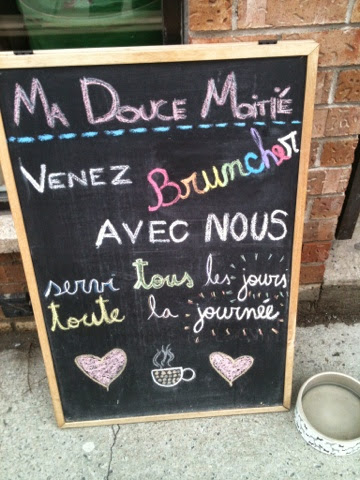 Ma Douce Moitié
Venez Bruncher
AVEC NOUS
servi tous les jours
toute la journée